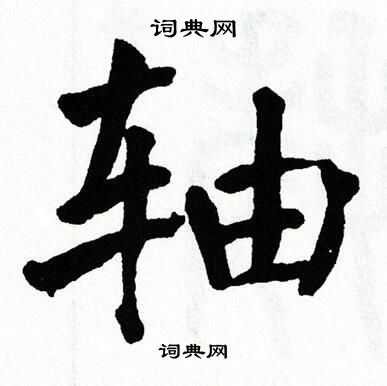 词典网
轴
词典网